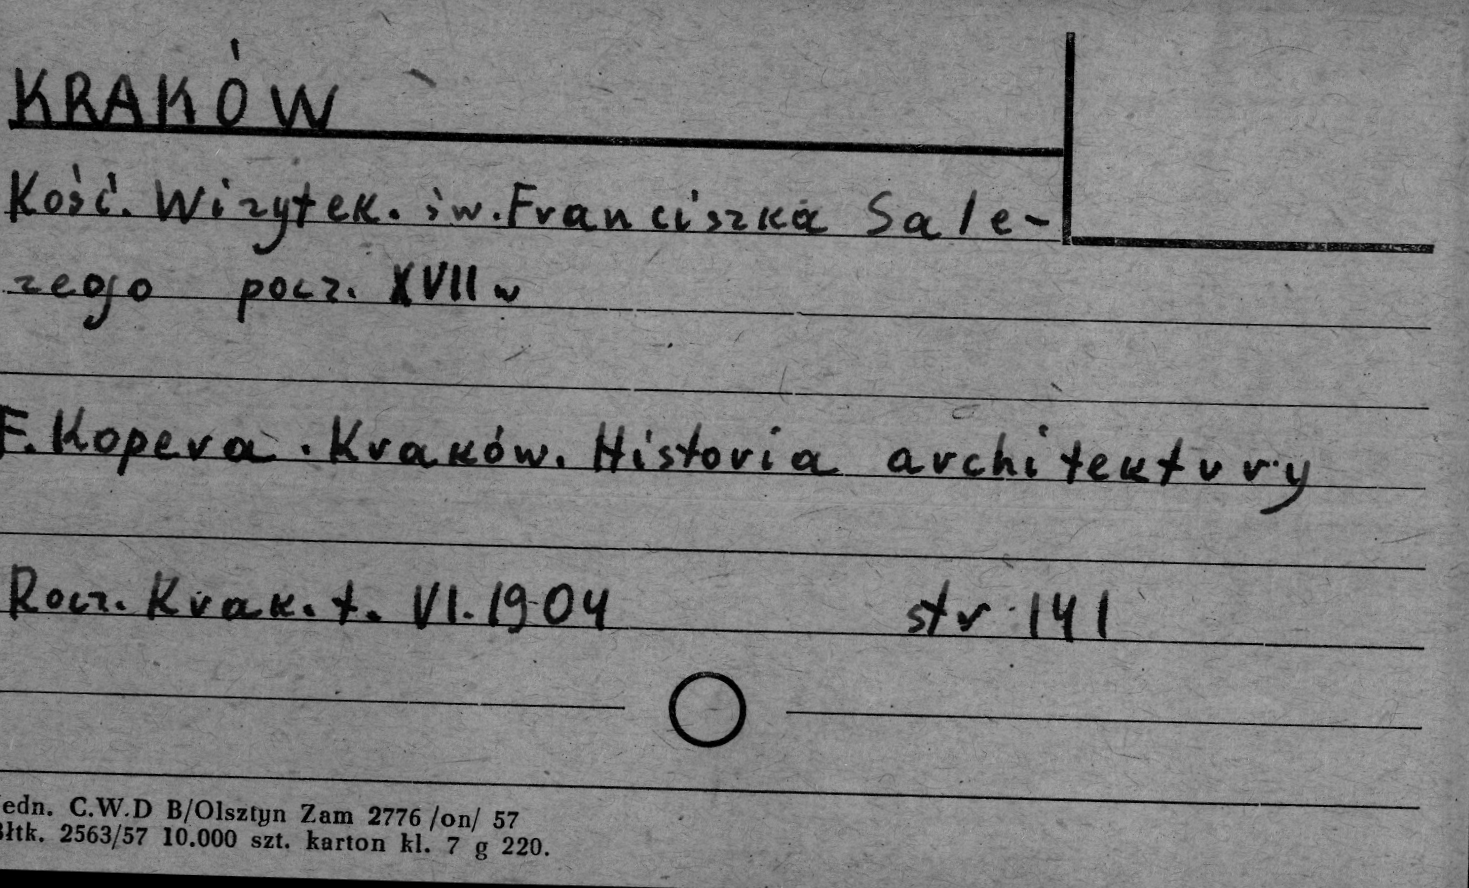 KRAKÓW
Kość. Wizytek. św. Franciszka Sale-
zego pocz. XVII w
F. Kopera. Kraków. Historia architektury
Rocz. Krak. t. VI. 1904 str. 141
edn. C.W.D B/Olsztyn Zam 2776 /on/ 57
łtk. 2563/57 10.000 szt. karton kl. 7 g 220.